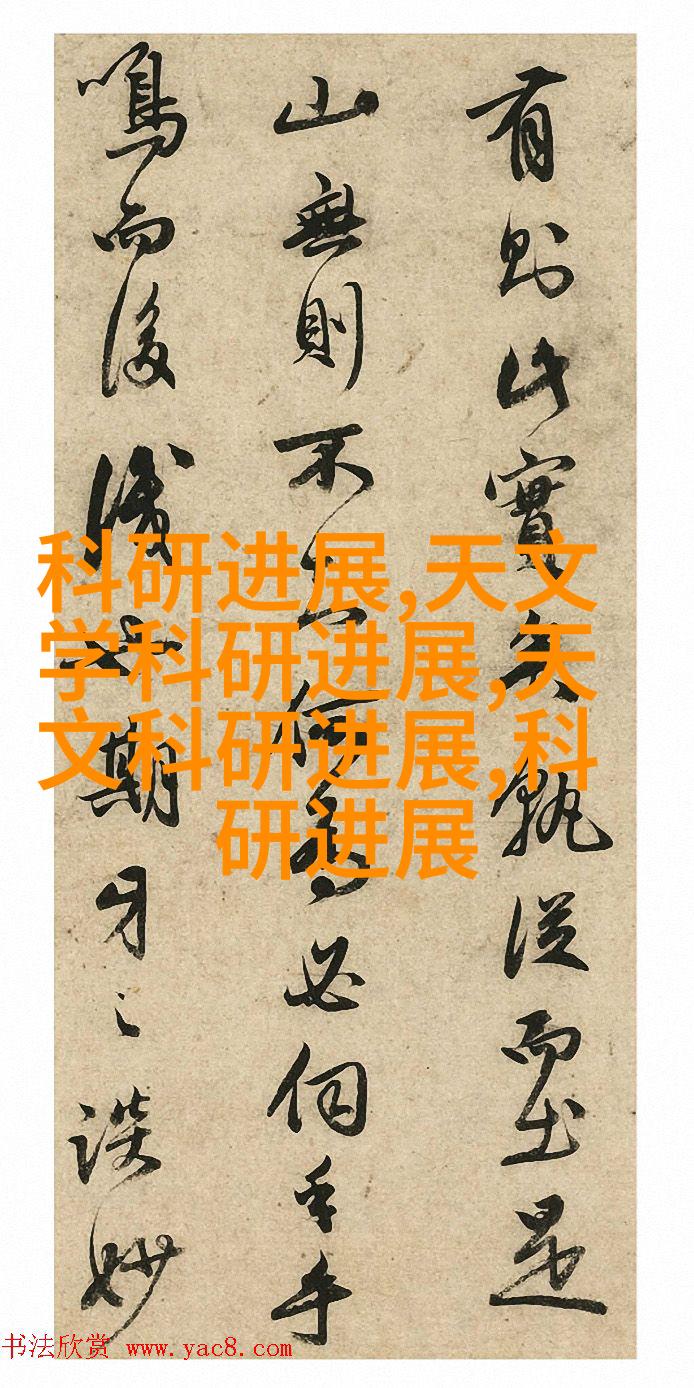 有則此實矣孰從而出是
山無則不何為必手乎
鳴而後識期之談妙
科研进展,天文
学科研进展,天
文科研进展,科
研进展
书法欣赏 www.yac8.com